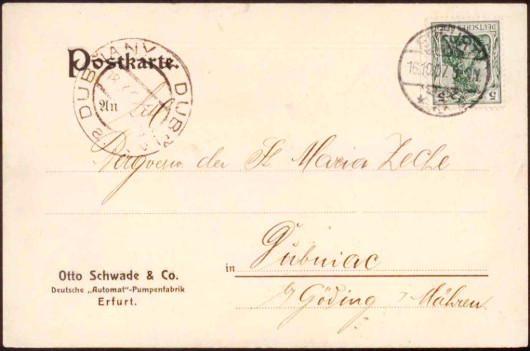 Postkarte.
DUBŇANY DUB
An
ERFURT
16.10.07
DEUTSCHES REICH
5
der St Maria Zeche
in Dubniac
Göding Mähren.
Otto Schwade & Co.
Deutsche „Automat"-Pumpenfabrik
Erfurt.